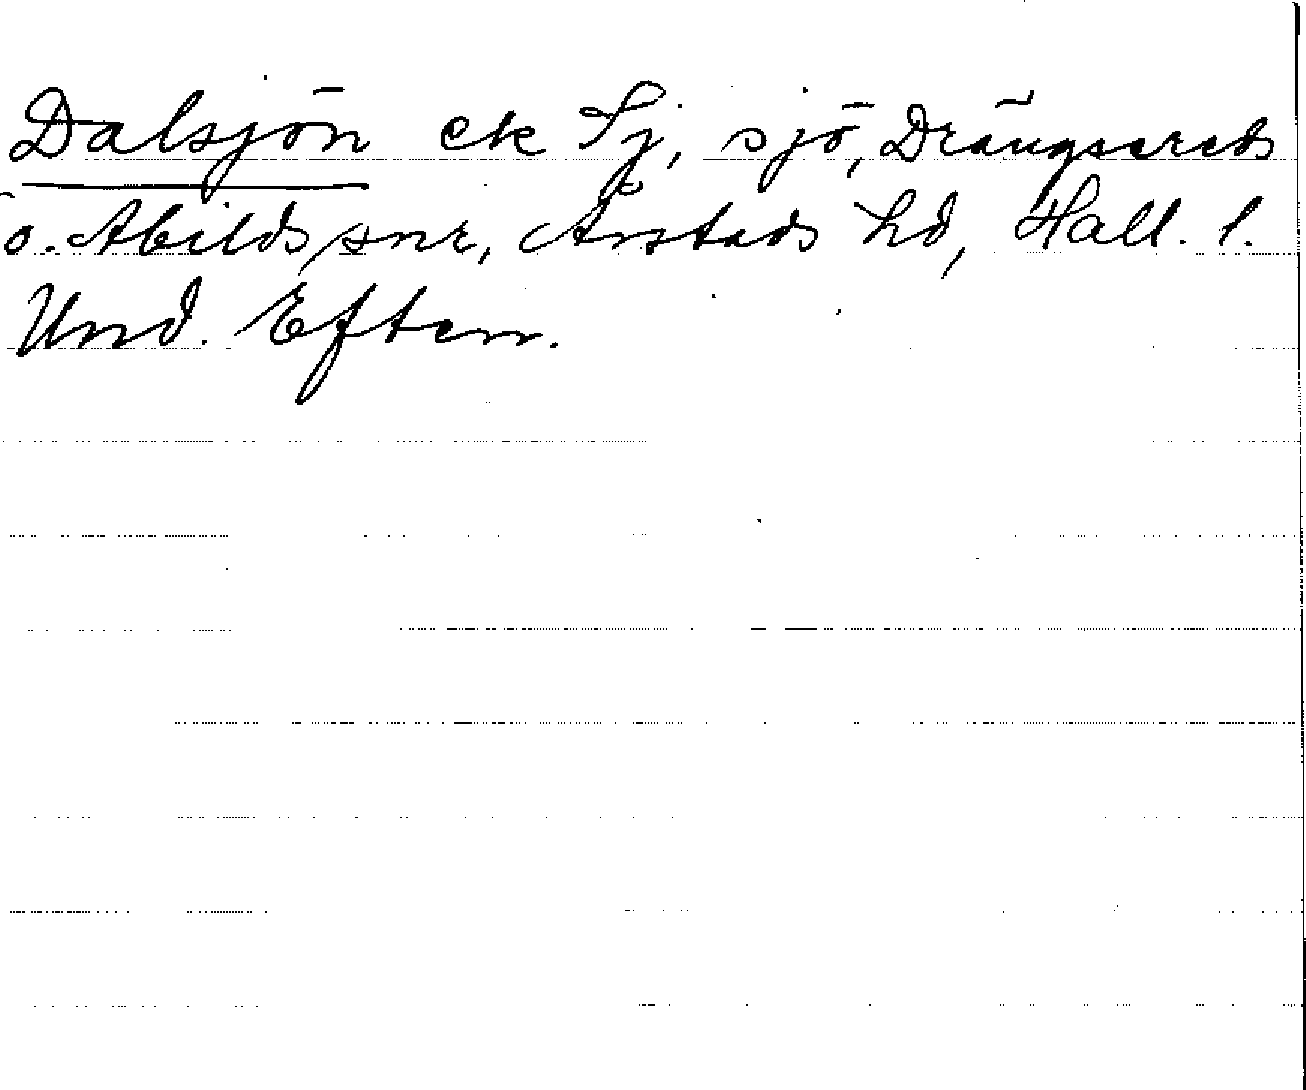 Dalsjön ek Sj, sjö, Drängsereds
o. Abilds snr, Årstads hd, Hall. l.
Und. Eftern.